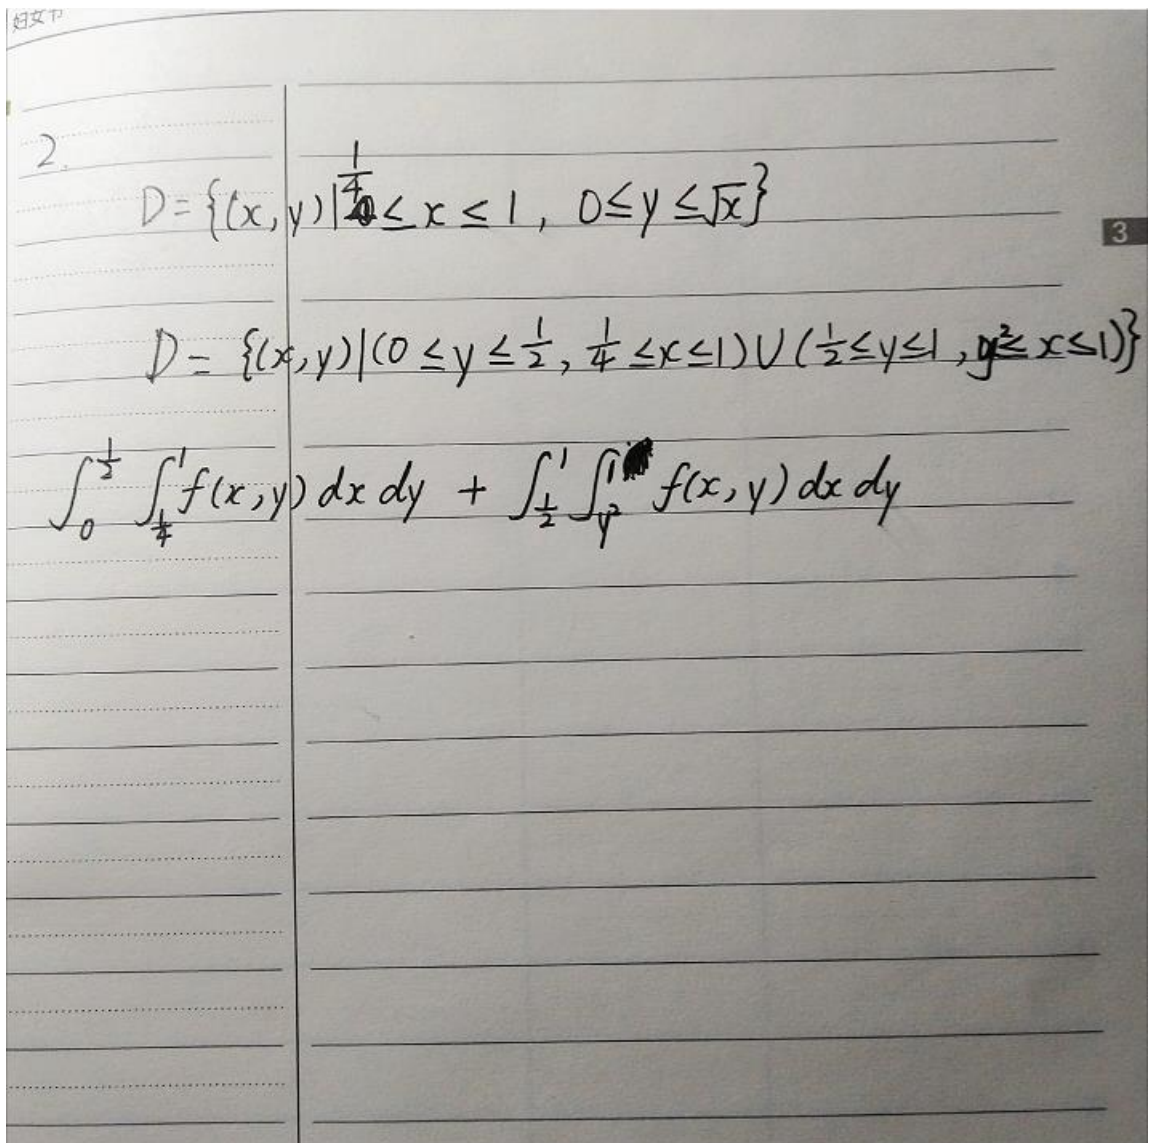 妇女节
2.
D={(x,y)|1/4≤x≤1, 0≤y≤√x}
3
D={(x,y)|(0≤y≤1/2, 1/4≤x≤1)∪(1/2≤y≤1, y²≤x≤1)}
∫₀^{1/2} ∫_{1/4}^1 f(x,y) dx dy + ∫_{1/2}^1 ∫_{y²}^1 f(x,y) dx dy